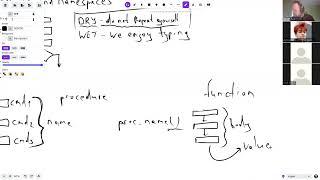 and namespaces
DRY - do not repeat yourself
WET - we enjoy typing
function
procedure
cmd1
cmd2
cmd3
name
proc_name()
body
value